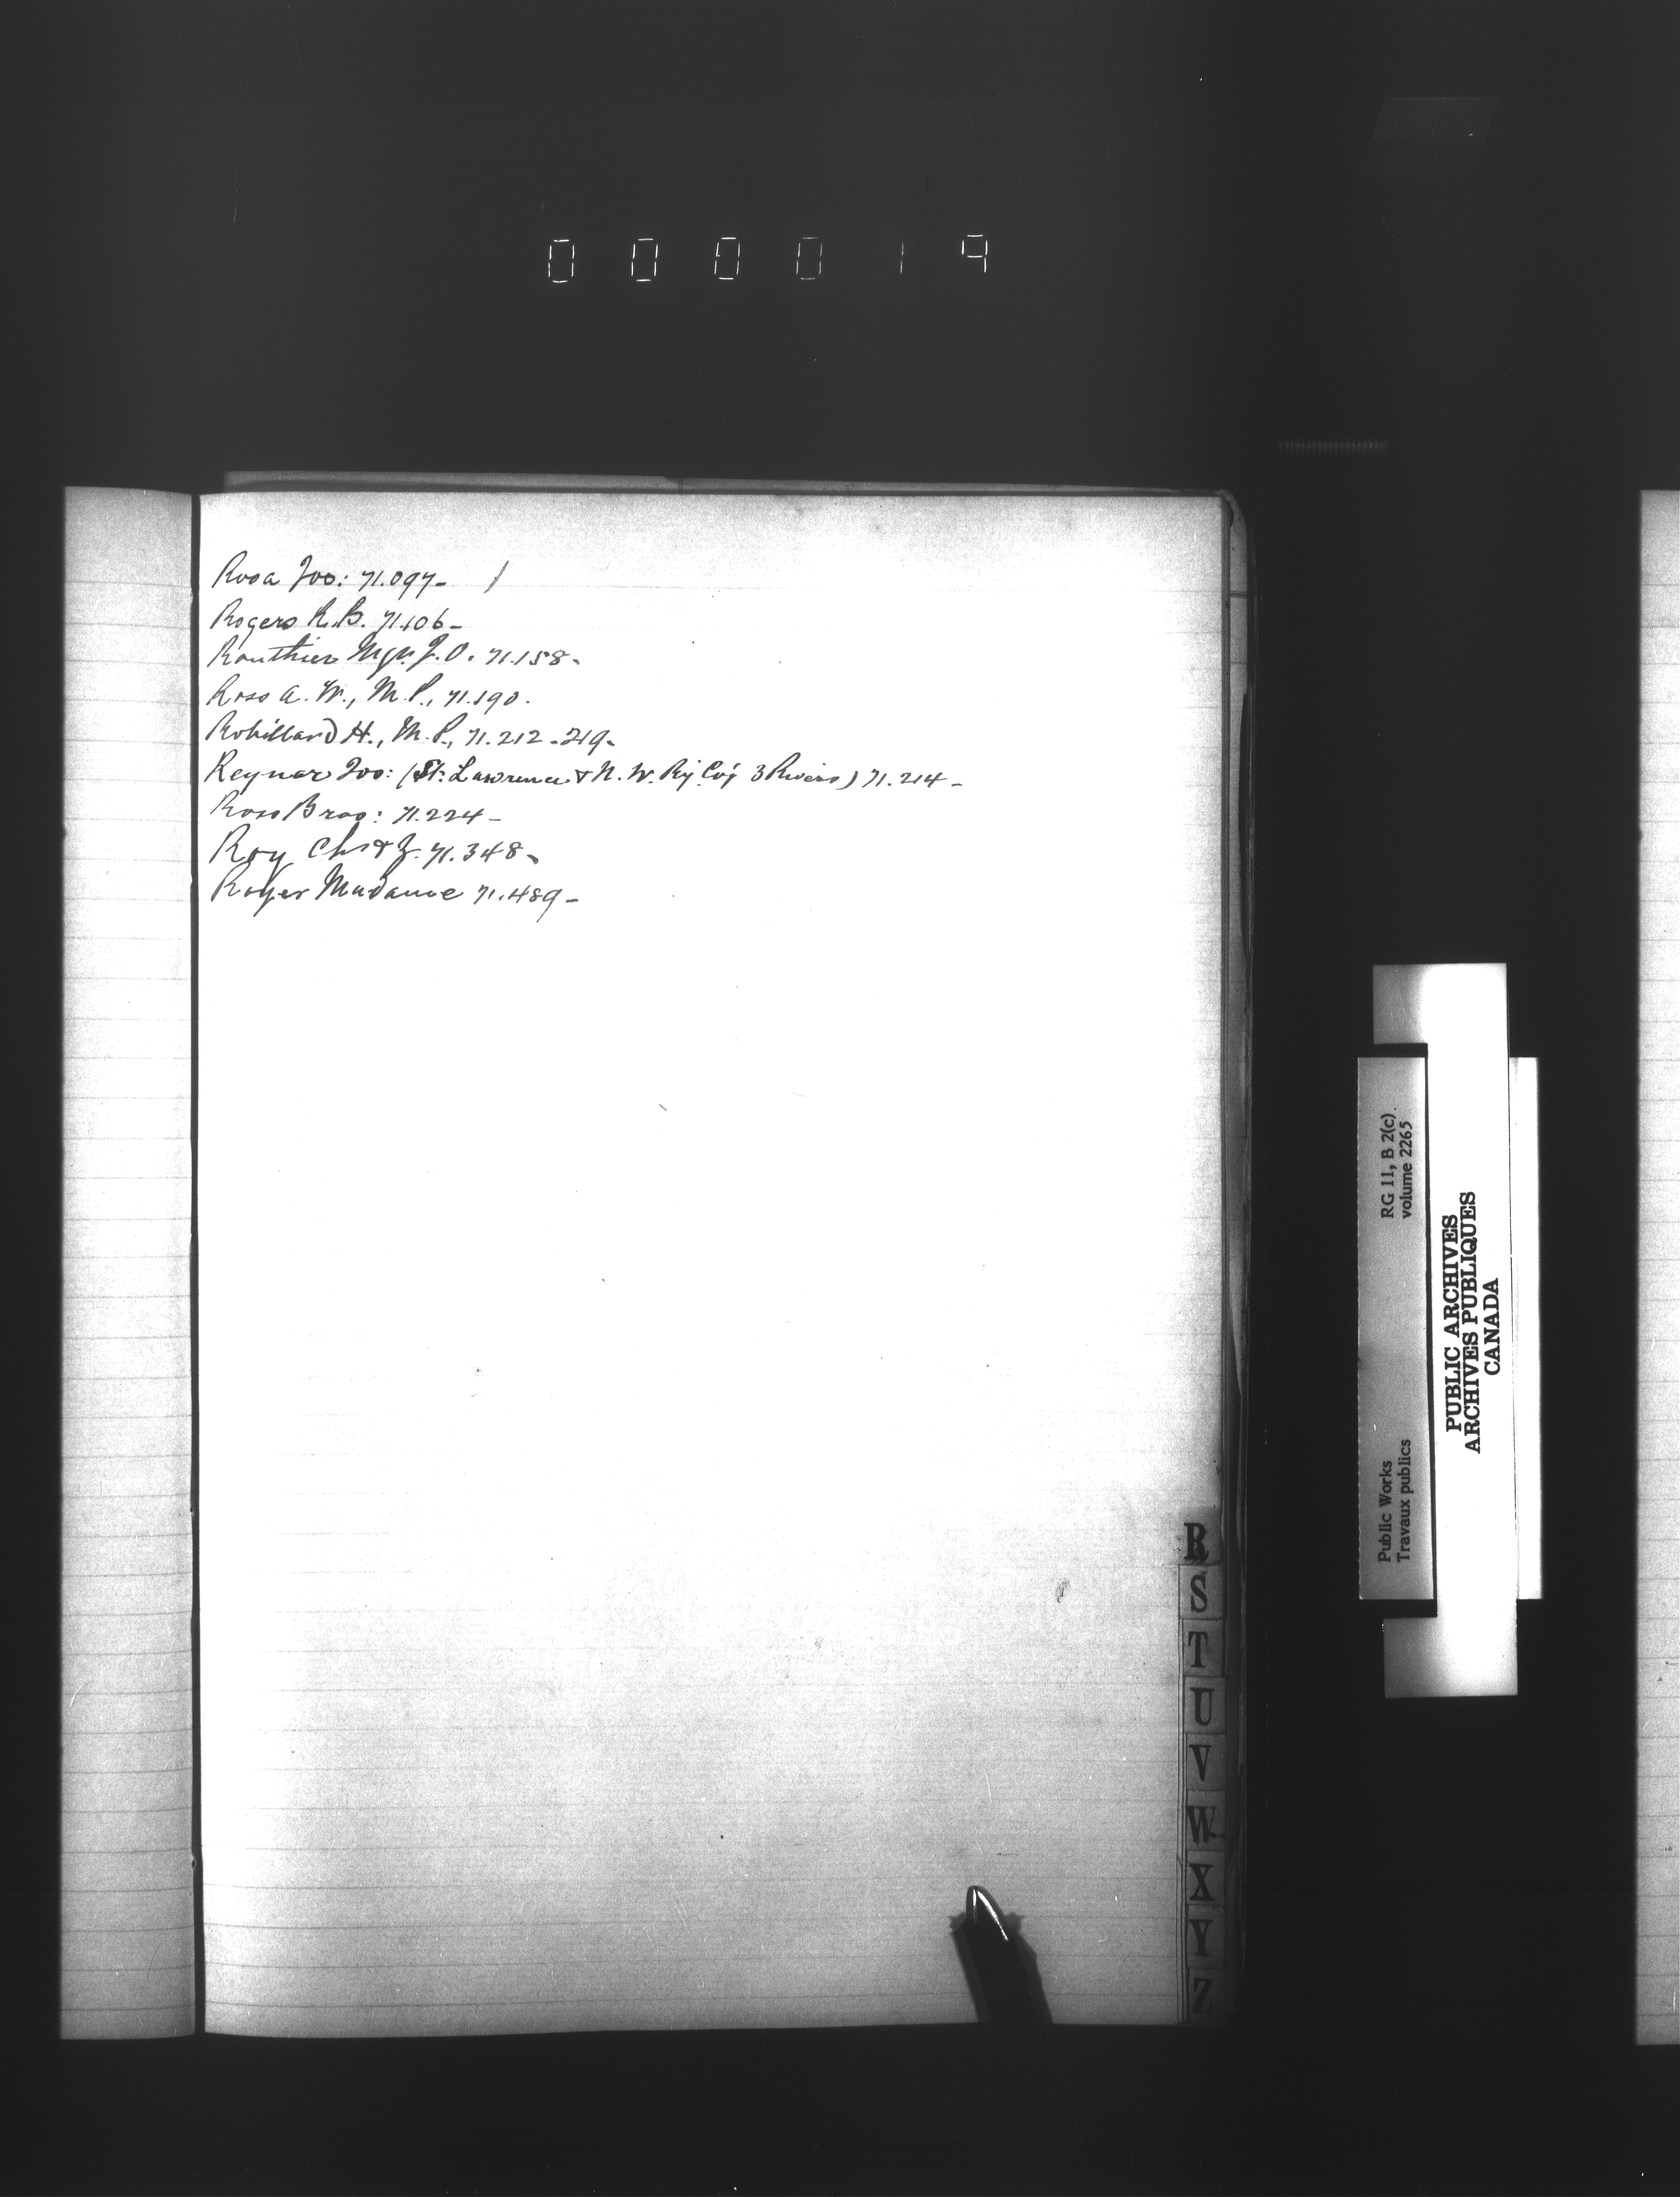 000019
Rosa Jos: 71.097- /
Rogers R.B. 71.106-
Routhier Mgr. J.O. 71.158-
Ross A. W., M.P., 71.190.
Robillard H., M.P., 71.212-219-
Reynar Jos: (St: Lawrence & N. W. Ry. Coy 3 Rivers) 71.214-
Ross Bros: 71.224-
Roy Chs & J. 71.348-
Roger Madame 71.489-
R
S
T
U
V
W
X
Y
Z
RG 11, B 2(c).
volume 2265
Public Works
Travaux publics
PUBLIC ARCHIVES
ARCHIVES PUBLIQUES
CANADA